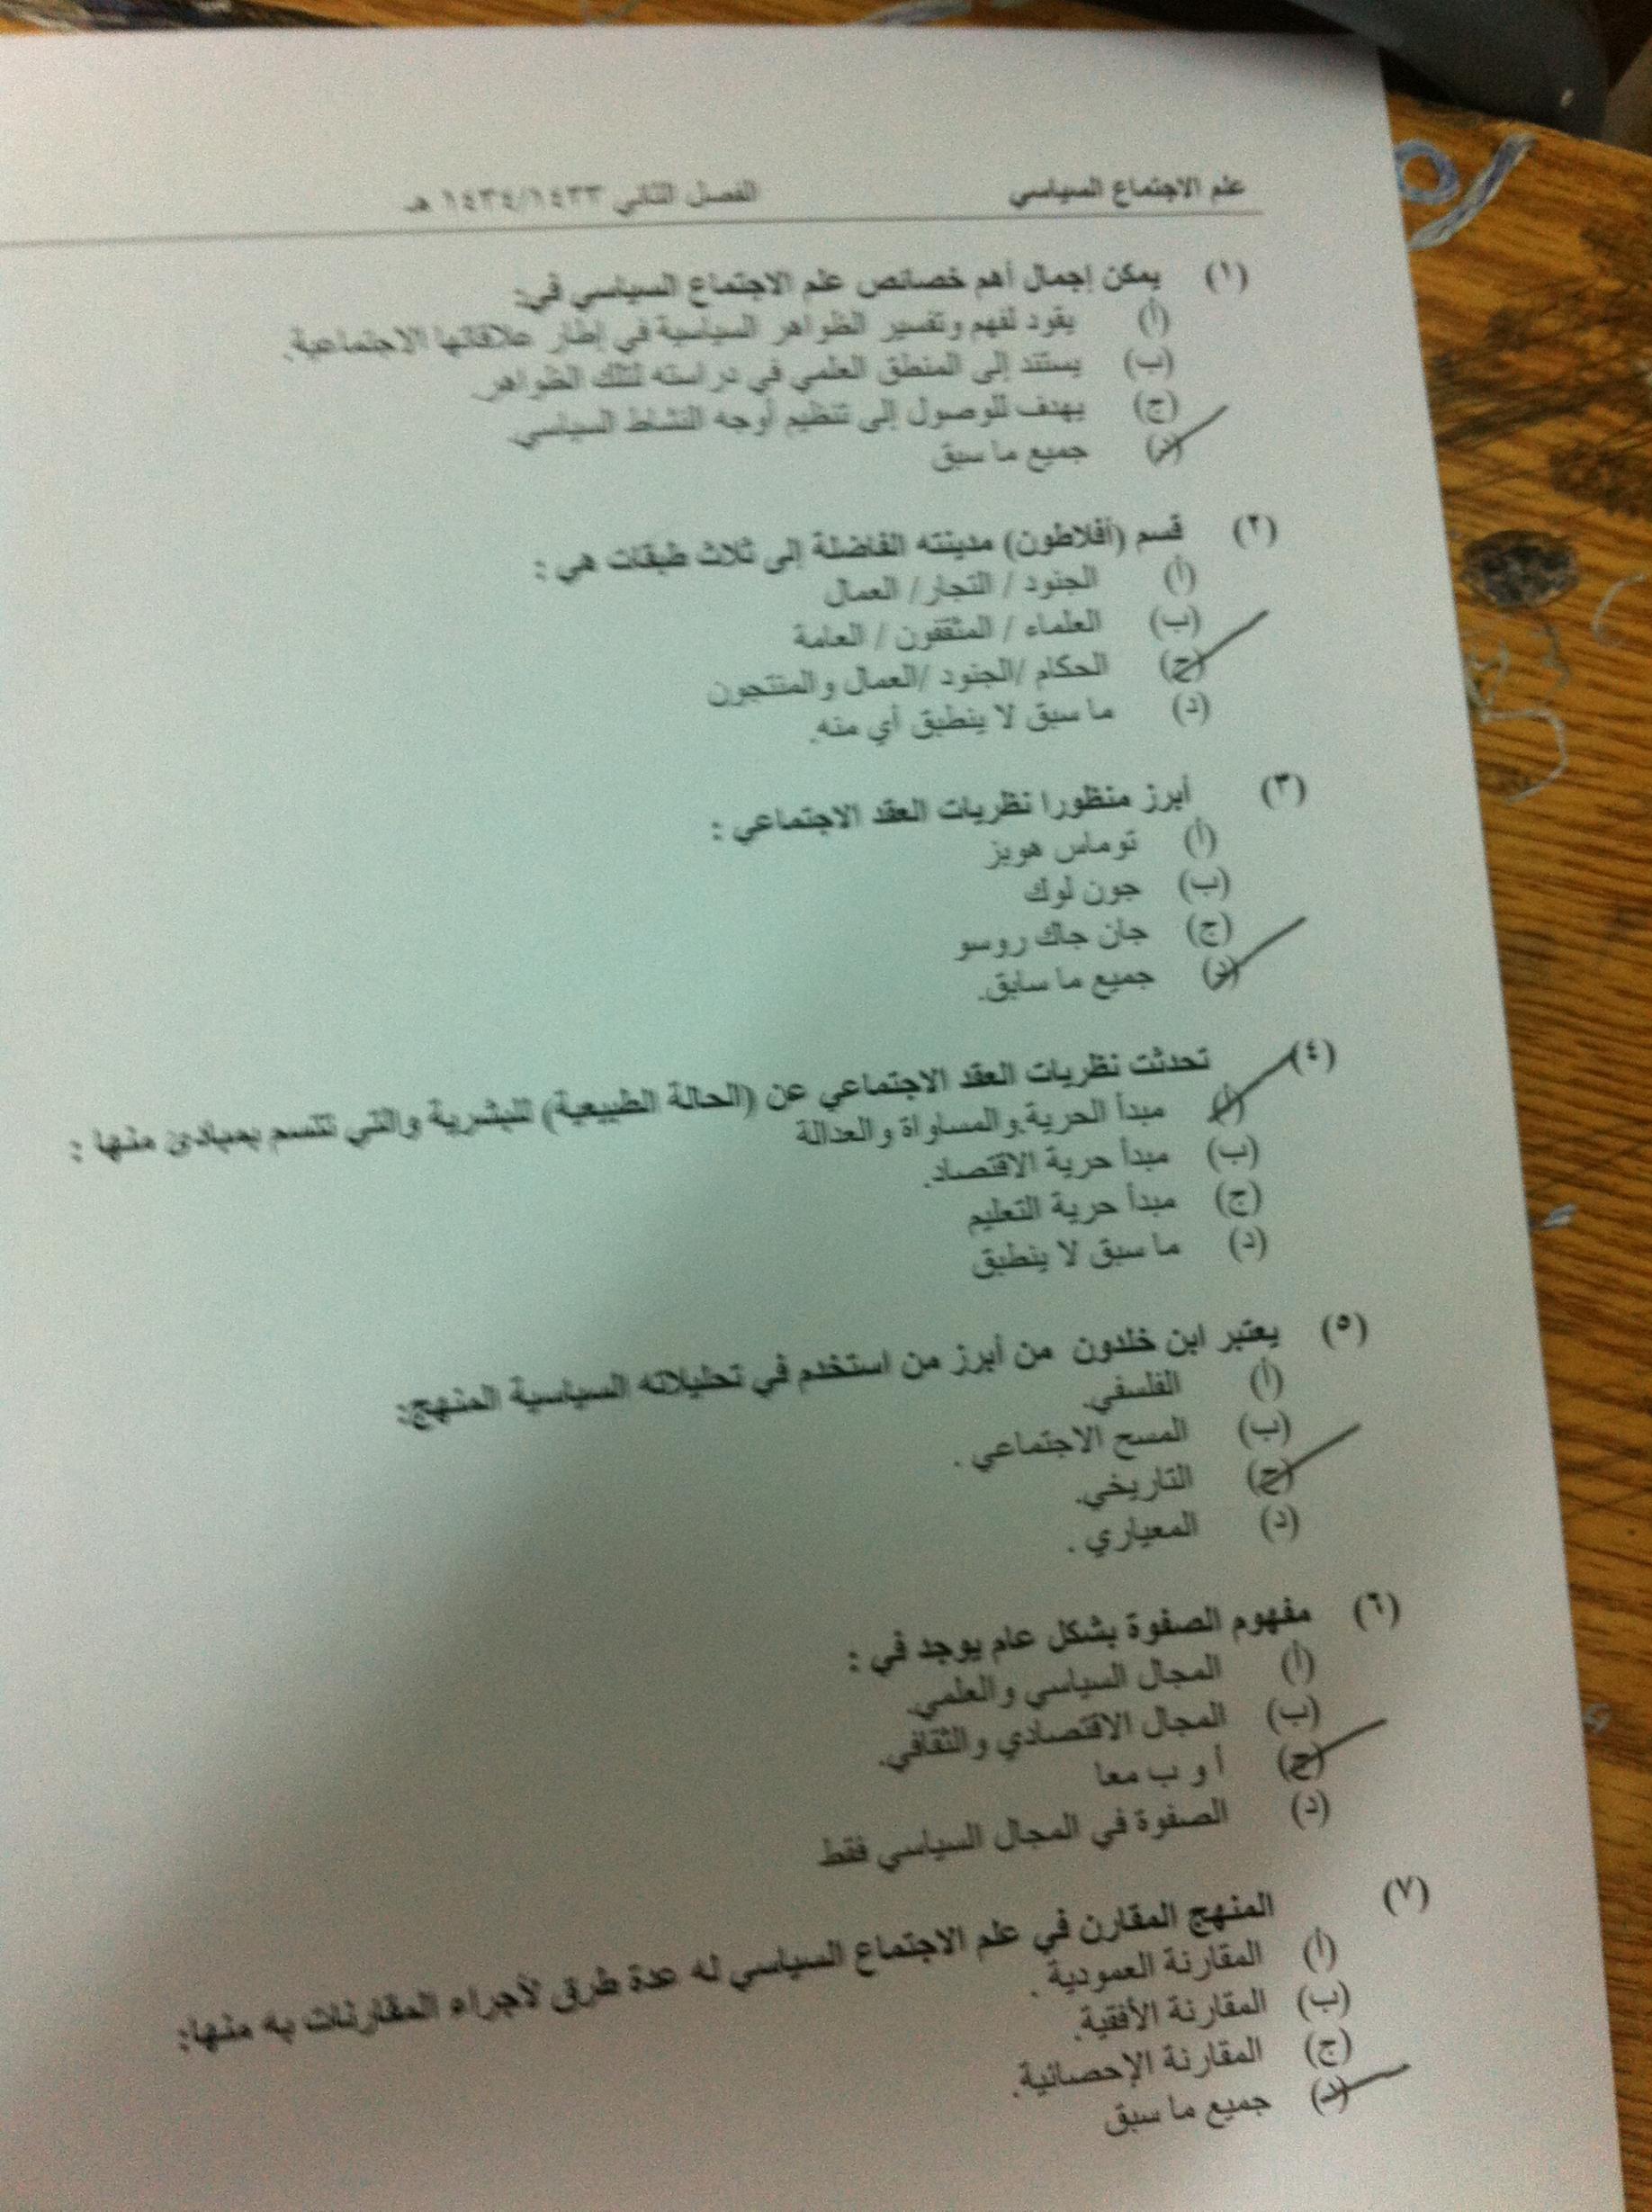 علم الاجتماع السياسي
الفصل الثاني ١٤٣٤/١٤٣٣ هـ
(١) يمكن إجمال أهم خصائص علم الاجتماع السياسي في:
(أ) يقود لفهم وتفسير الظواهر السياسية في إطار علاقاتها الاجتماعية.
(ب) يستند إلى المنطق العلمي في دراسته لتلك الظواهر.
(ج) يهدف للوصول إلى تنظيم أوجه النشاط السياسي.
(د) جميع ما سبق
(٢) قسم (أفلاطون) مدينته الفاضلة إلى ثلاث طبقات هي :
(أ) الجنود / التجار/ العمال
(ب) العلماء / المثقفون / العامة
(ج) الحكام /الجنود /العمال والمنتجون
(د) ما سبق لا ينطبق أي منه.
(٣) أبرز منظورا نظريات العقد الاجتماعي :
(أ) توماس هوبز
(ب) جون لوك
(ج) جان جاك روسو
(د) جميع ما سابق.
(٤) تحدثت نظريات العقد الاجتماعي عن (الحالة الطبيعية) للبشرية والتي تتسم بمبادئ منها :
(أ) مبدأ الحرية والمساواة والعدالة
(ب) مبدأ حرية الاقتصاد.
(ج) مبدأ حرية التعليم
(د) ما سبق لا ينطبق
(٥) يعتبر ابن خلدون من أبرز من استخدم في تحليلاته السياسية المنهج:
(أ) الفلسفي.
(ب) المسح الاجتماعي .
(ج) التاريخي.
(د) المعياري .
(٦) مفهوم الصفوة بشكل عام يوجد في :
(أ) المجال السياسي والعلمي.
(ب) المجال الاقتصادي والثقافي.
(ج) أ و ب معا
(د) الصفوة في المجال السياسي فقط
(٧) المنهج المقارن في علم الاجتماع السياسي له عدة طرق لأجراء المقارنات به منها:
(أ) المقارنة العمودية .
(ب) المقارنة الأفقية.
(ج) المقارنة الإحصائية.
(د) جميع ما سبق